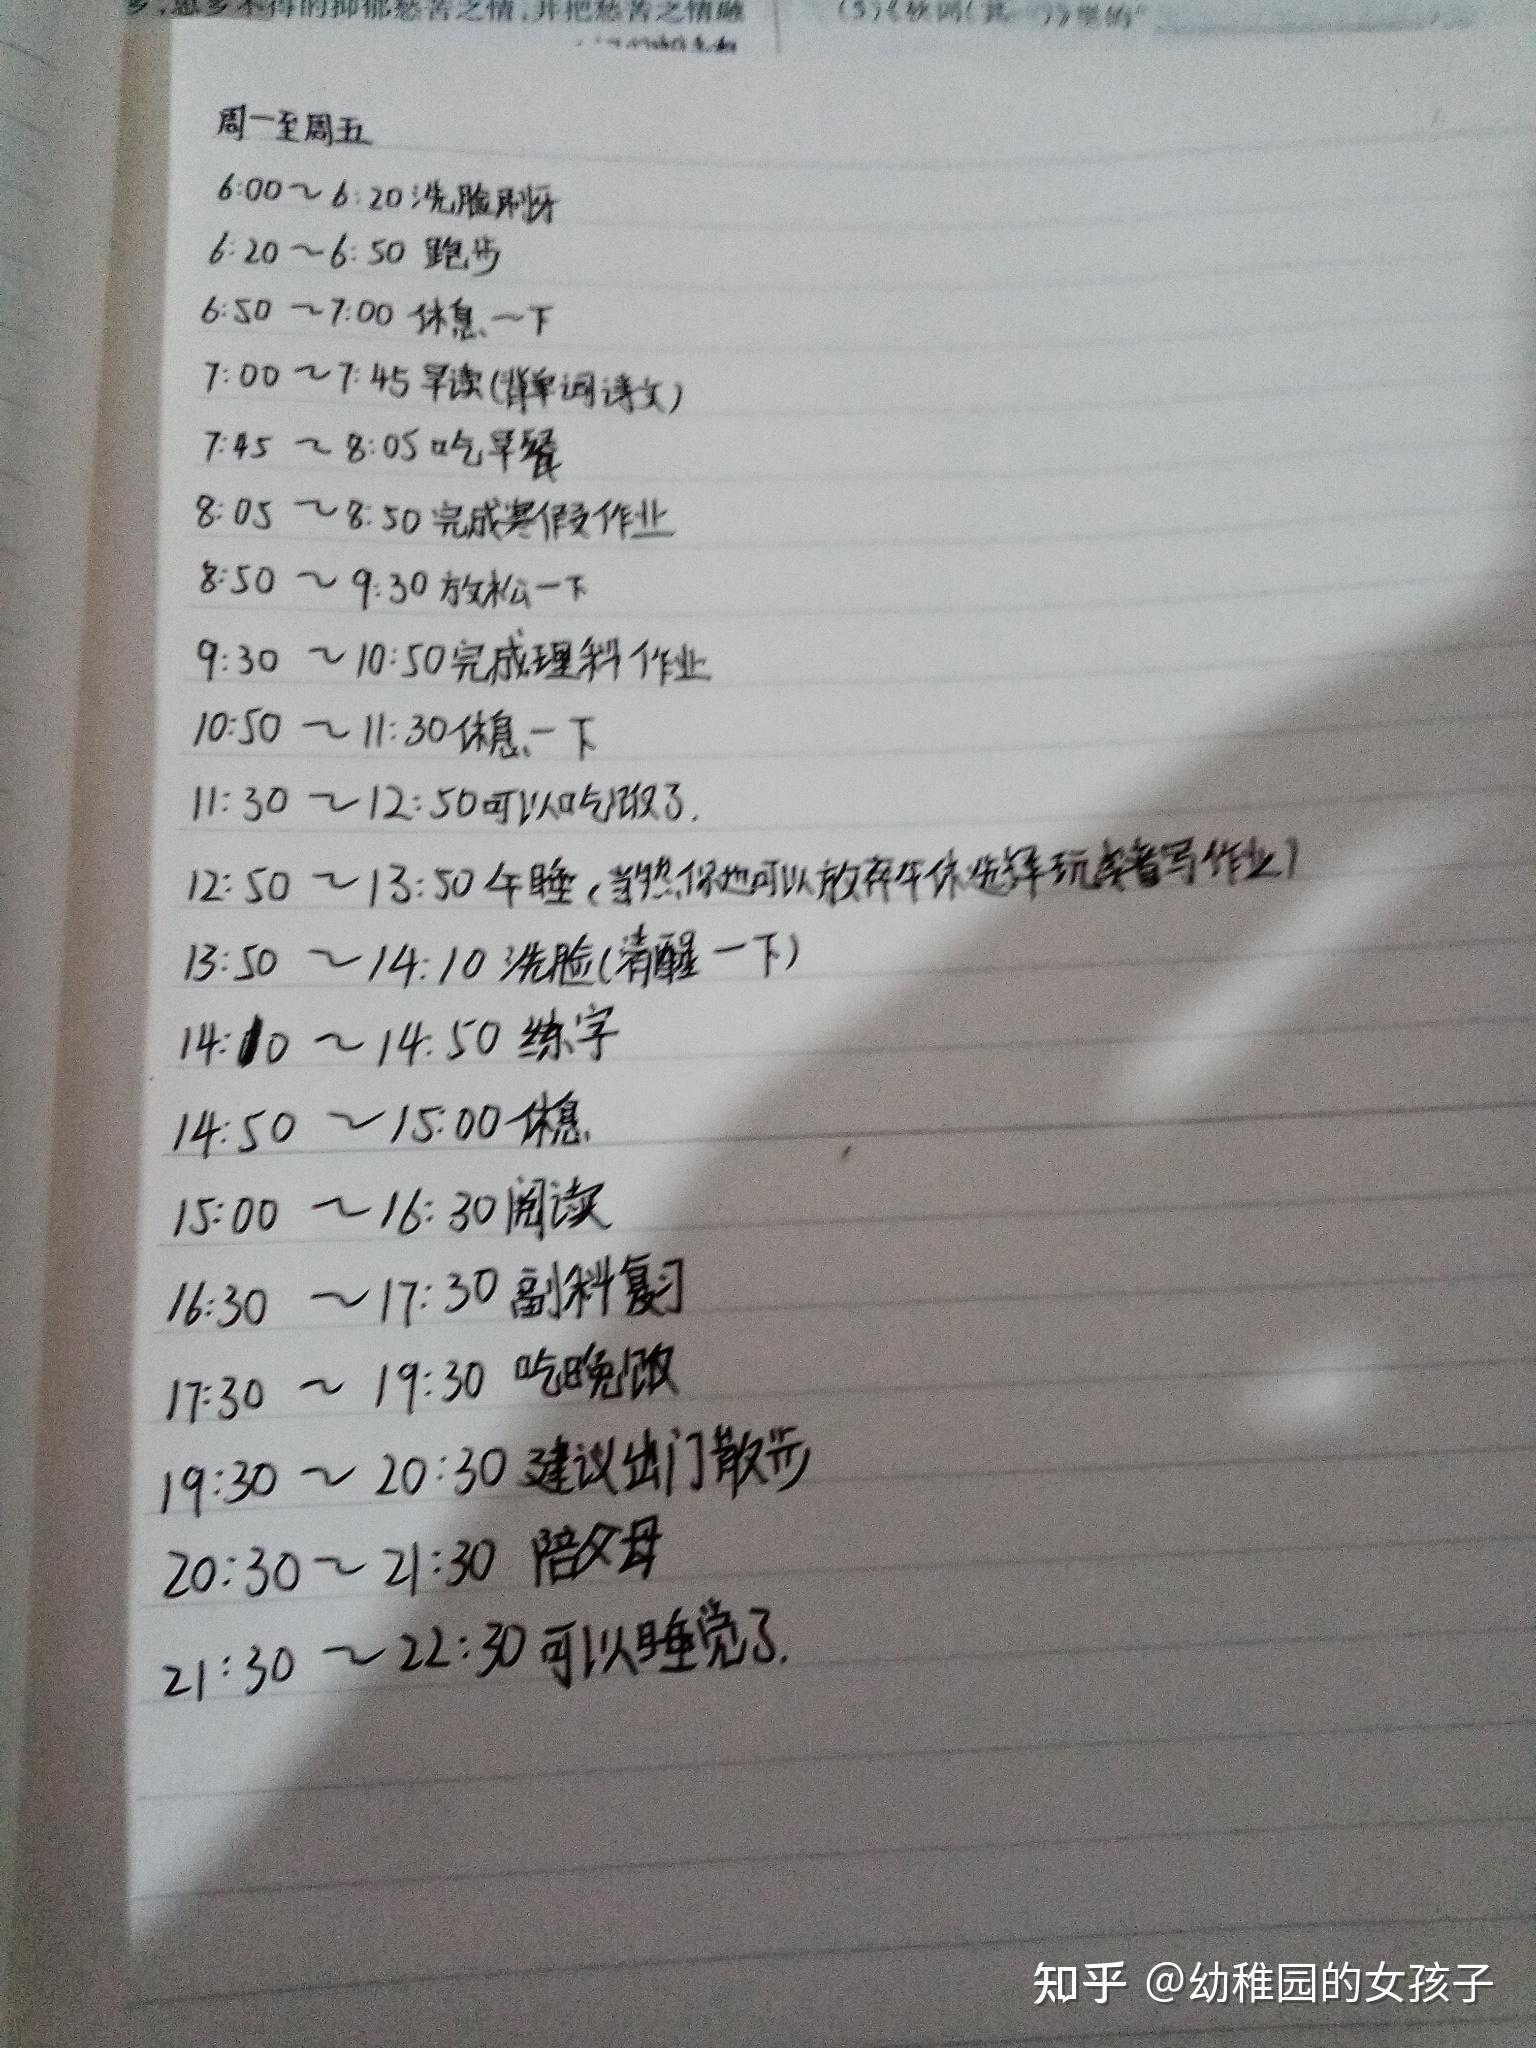 多,思乡不得的抑郁愁苦之情,并把愁苦之情融
周一至周五
6:00~6:20洗脸刷牙
6:20~6:50 跑步
6:50~7:00 休息一下
7:00~7:45 早读(背单词诗文)
7:45~8:05吃早餐
8:05~8:50完成寒假作业
8:50~9:30放松一下
9:30~10:50完成理科作业
10:50~11:30休息一下
11:30~12:50可以吃饭了.
12:50~13:50午睡(当然你也可以放弃午休选择玩或者写作业)
13:50~14:10洗脸(清醒一下)
14:10~14:50 练字
14:50~15:00休息
15:00~16:30阅读
16:30~17:30副科复习
17:30~19:30 吃晚饭
19:30~20:30 建议出门散步
20:30~21:30 陪父母
21:30~22:30可以睡觉了.
知乎 @幼稚园的女孩子